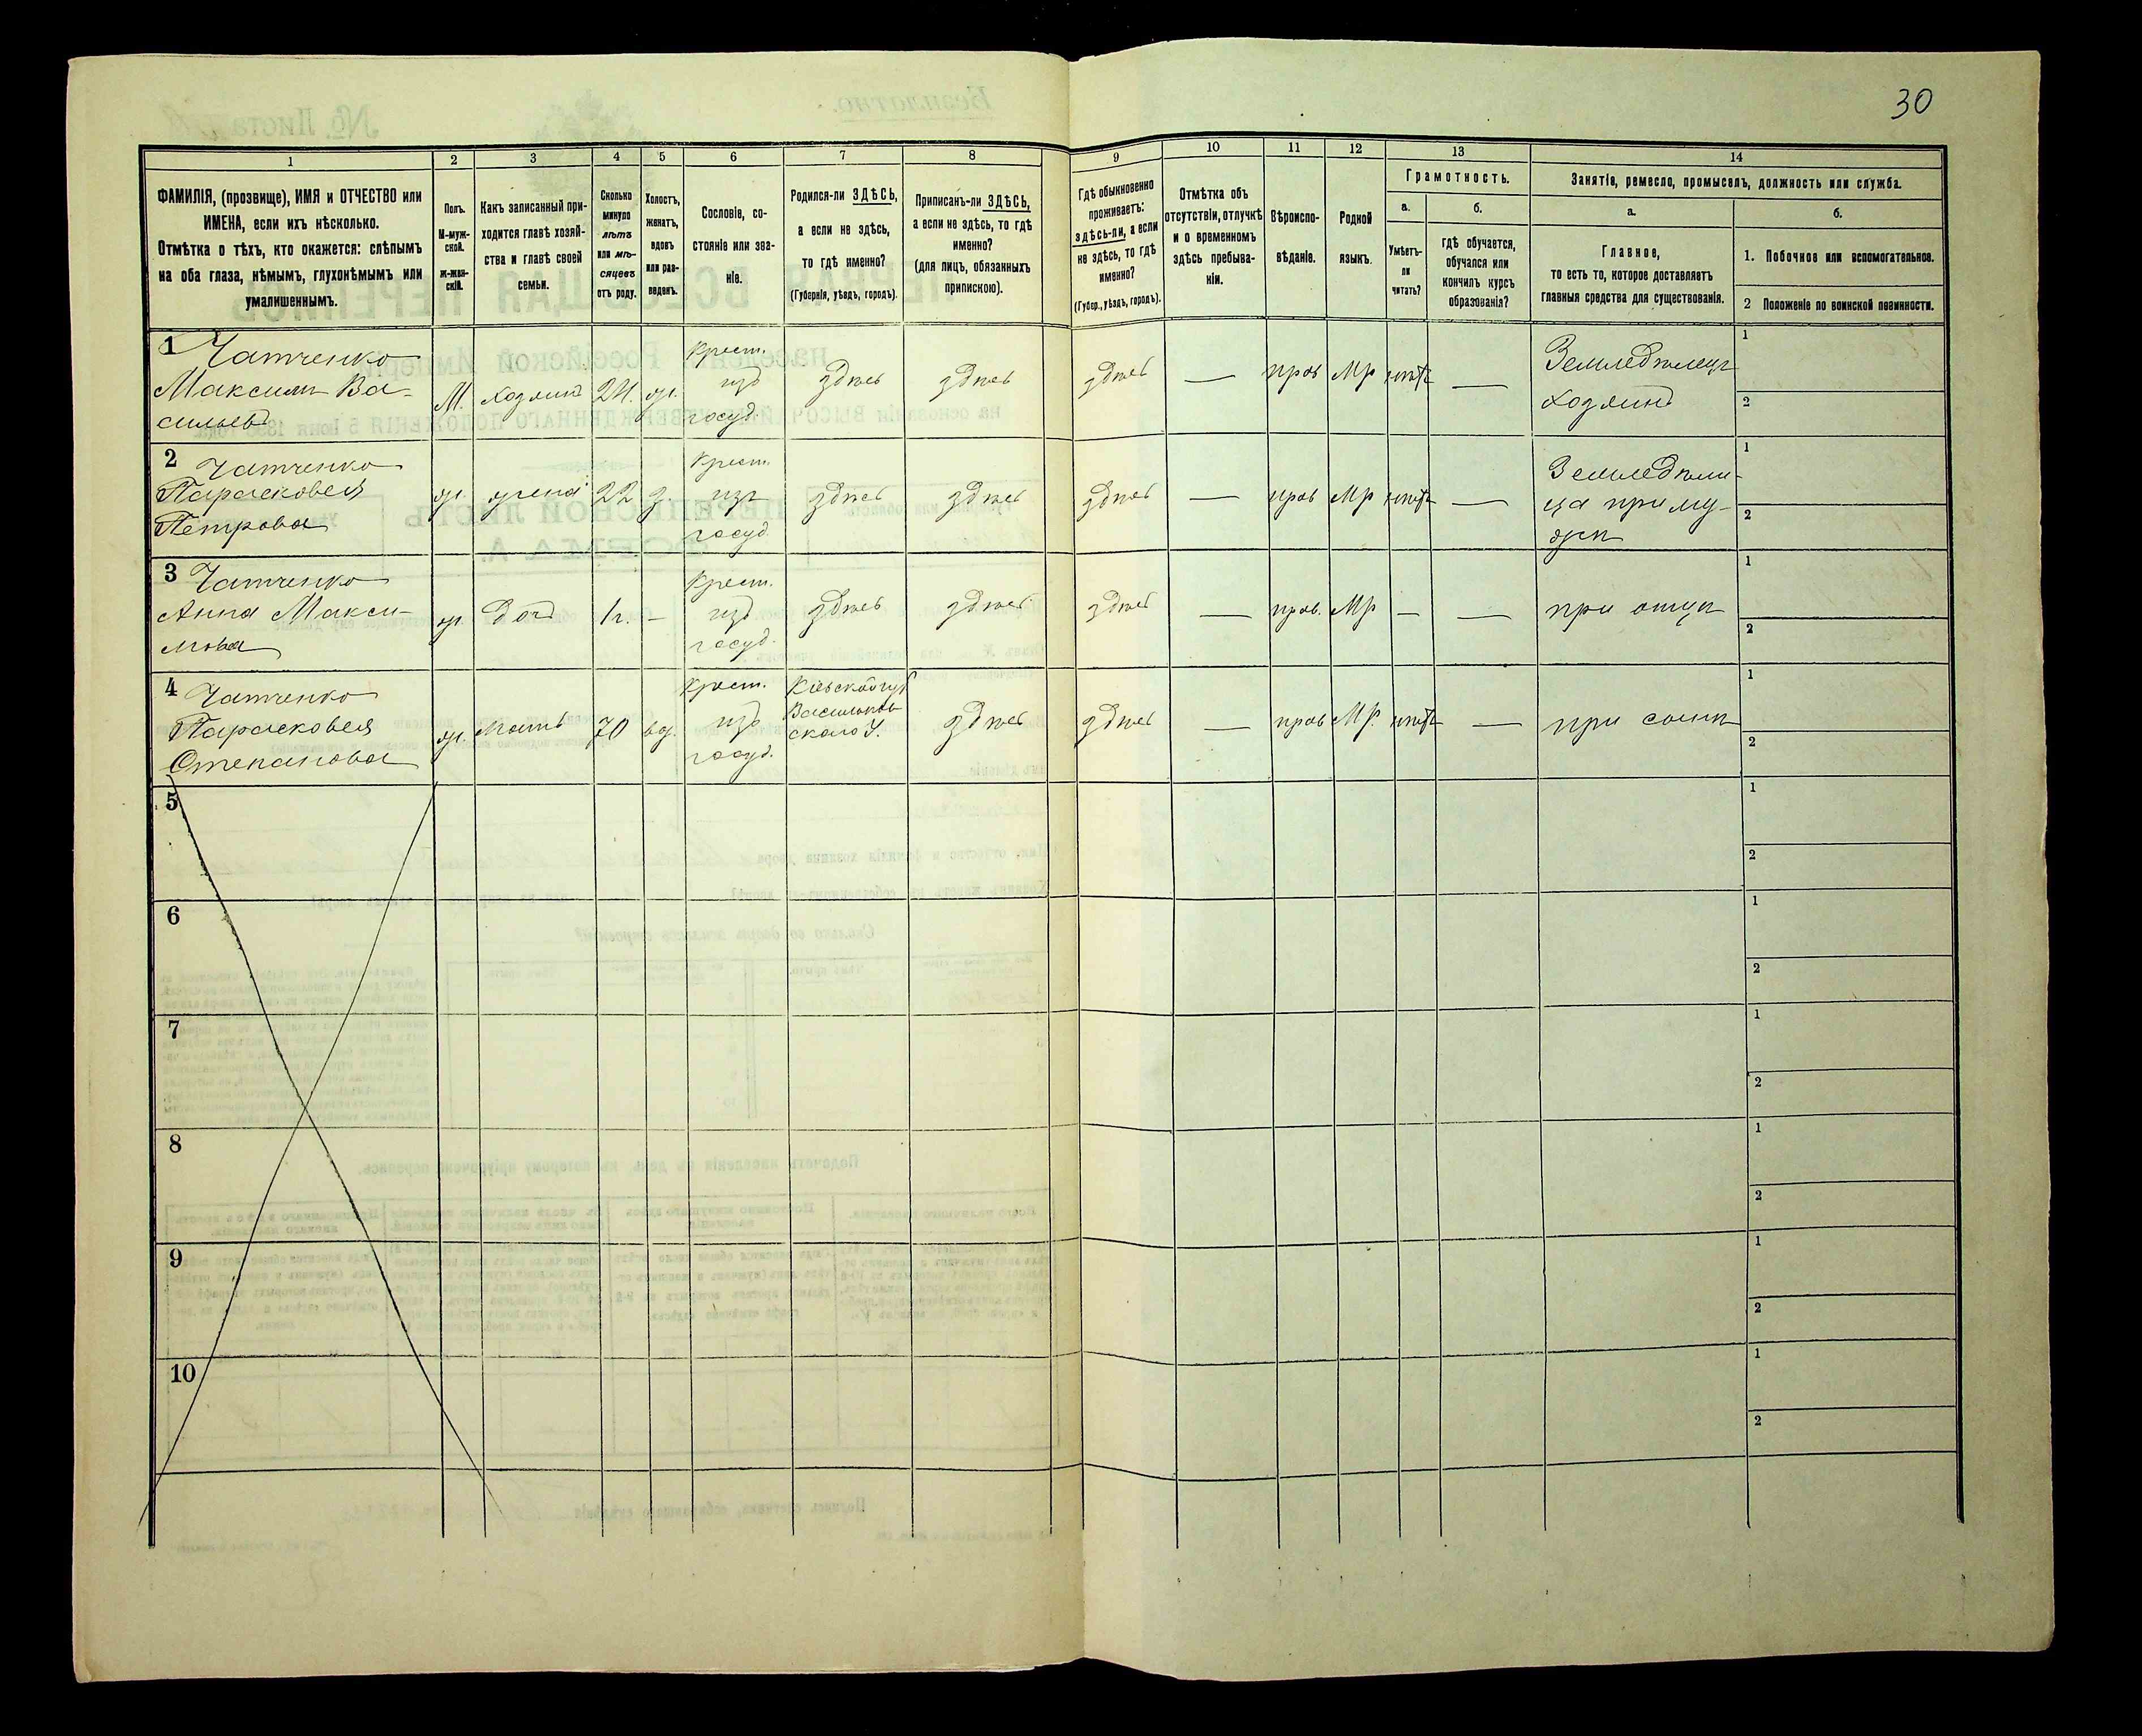 30
1 2 3 4 5 6 7 8 9 10 11 12 13 14
ФАМИЛІЯ, (прозвище), ИМЯ и ОТЧЕСТВО или
ИМЕНА, если ихъ нѣсколько.
Отмѣтка о тѣхъ, кто окажется: слѣпымъ
на оба глаза, нѣмымъ, глухонѣмымъ или
умалишеннымъ.
Полъ.
М-муж-
ской.
Ж-жен-
скій.
Какъ записанный при-
ходится главѣ хозяй-
ства и главѣ своей
семьи.
Сколько
минуло
лѣтъ
или мѣ-
сяцевъ
отъ роду.
Холостъ,
женатъ,
вдовъ
или раз-
веденъ.
Сословіе, со-
стояніе или зва-
ніе.
Родился-ли ЗДѢСЬ,
а если не здѣсь,
то гдѣ именно?
(Губернія, уѣздъ, городъ).
Приписанъ-ли ЗДѢСЬ,
а если не здѣсь, то гдѣ
именно?
(для лицъ, обязанныхъ
припискою).
Гдѣ обыкновенно
проживаетъ:
здѣсь-ли, а если
не здѣсь, то гдѣ
именно?
(Губер., уѣздъ, городъ).
Отмѣтка объ
отсутствіи, отлучкѣ
и о временномъ
здѣсь пребыва-
ніи.
Вѣроиспо-
вѣданіе.
Родной
языкъ.
Грамотность.
а.
Умѣетъ-
ли
читать?
б.
гдѣ обучается,
обучался или
кончилъ курсъ
образованія?
Занятіе, ремесло, промыселъ, должность или служба.
а.
Главное,
то есть то, которое доставляетъ
главныя средства для существованія.
б.
1. Побочное или вспомогательное.
2 Положеніе по воинской повинности.
1 Чатченко
Максимъ Ва-
сильев
М. хозяинъ 24. ж.
Крест.
изъ
госуд.
здѣсь здѣсь здѣсь — прав МР нѣтъ —
Земледѣлецъ
хозяинъ
1
2
2 Чатченко
Парасковея
Петрова
ж. жена 22 з.
Крест.
изъ
госуд.
здѣсь здѣсь здѣсь — прав МР нѣтъ —
Земледѣли-
ца при му-
жѣ
1
2
3 Чатченко
Анна Макси-
мова
ж. дочь 1г. —
Крест.
изъ
госуд.
здѣсь здѣсь здѣсь — прав. МР — —
при отцѣ
1
2
4 Чатченко
Парасковея
Степанова
ж. мать 70 вд.
Крест.
изъ
госуд.
Кіевской губ
Васильков
скаго У.
здѣсь здѣсь — прав МР. нѣтъ —
при сынѣ
1
2
5
1
2
6
1
2
7
1
2
8
1
2
9
1
2
10
1
2